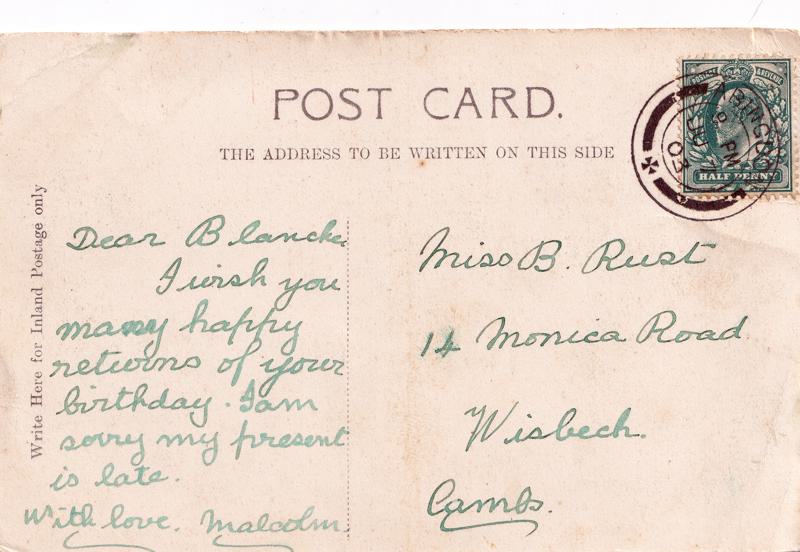 POST CARD.
THE ADDRESS TO BE WRITTEN ON THIS SIDE
POSTAGE & REVENUE
HALF PENNY
ABINGDON
PM
JU
03
Write Here for Inland Postage only
Dear Blanche
I wish you
many happy
returns of your
birthday. I am
sorry my present
is late.
With love. Malcolm.
Miss B. Rust
14 Monica Road
Wisbech.
Cambs.